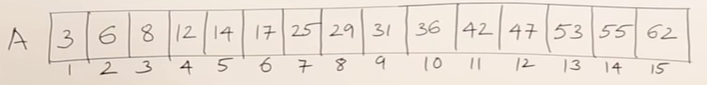 A 3 6 8 12 14 17 25 29 31 36 42 47 53 55 62
1 2 3 4 5 6 7 8 9 10 11 12 13 14 15